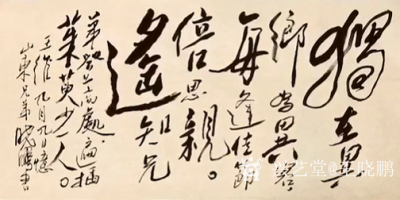 獨在異
鄉為異客
每逢佳節
倍思親。
遙知兄
弟登高處遍插
茱萸少一人。
王維九月九日憶
山東兄弟 曉鵬書
艺堂@李晓鹏